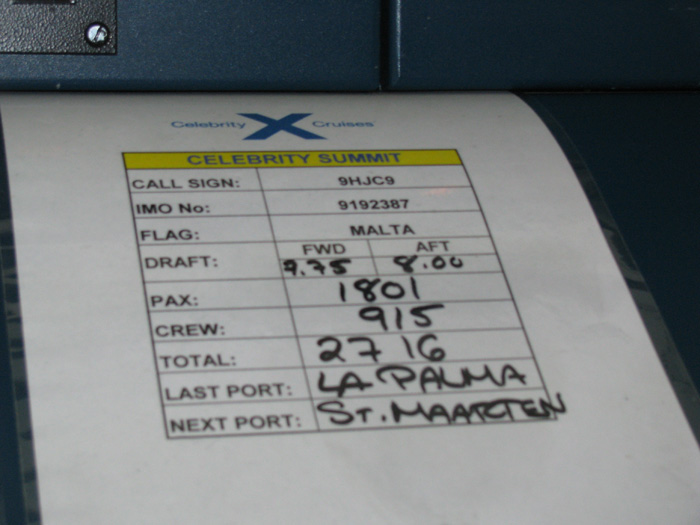 Celebrity X Cruises
CELEBRITY SUMMIT
CALL SIGN: 9HJC9
IMO No: 9192387
FLAG: MALTA
FWD AFT
DRAFT: 7.75 8.00
PAX: 1801
CREW: 915
TOTAL: 2716
LAST PORT: LA PALMA
NEXT PORT: ST. MAARTEN